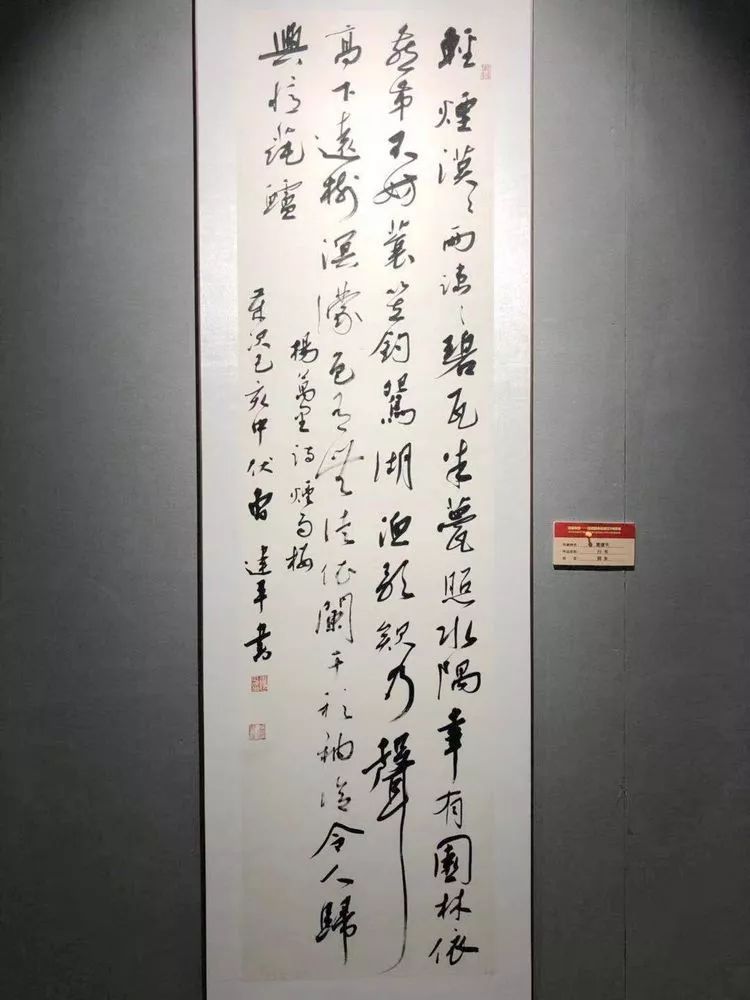 輕煙漠〻雨疎〻碧瓦朱甍照水隅幸有園林依
燕第不妨蓑笠釣鴛湖漁歌欸乃聲
高下遠樹溟濛色有無徙倚闌干衫袖冷令人歸
興憶蒓鱸
楊萬里詩煙雨樓
歲次己亥中伏建平書